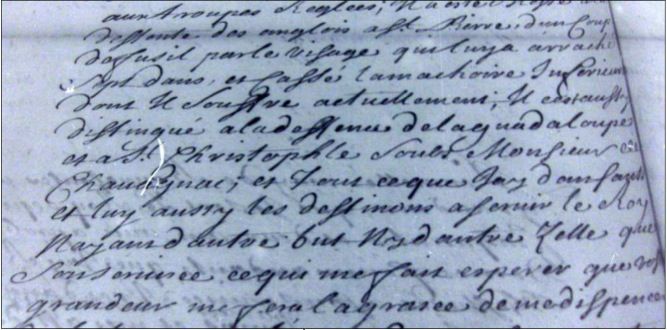 aux troupes Reglées, Il a esté blessé a la
dessente des anglois a St. Pierre, d'un Coup
de fusil par le visage qui luy a arraché
Sept dans, et Cassé la machoire Inferieure
dont Il Souffre actuellement, Il cest aussy
distingué a la deffence de la guadaloupe
et a St. Christophle Soubs Monsieur de
Chavagnac, et Tout ce que Jay d'enfants
et luy aussy les destinons a servir le Roy
Nayant d'autre but Ny dautre Zelle que
Son service ce qui me fait esperer que vo
grandeur me fera la grasce de me dispence